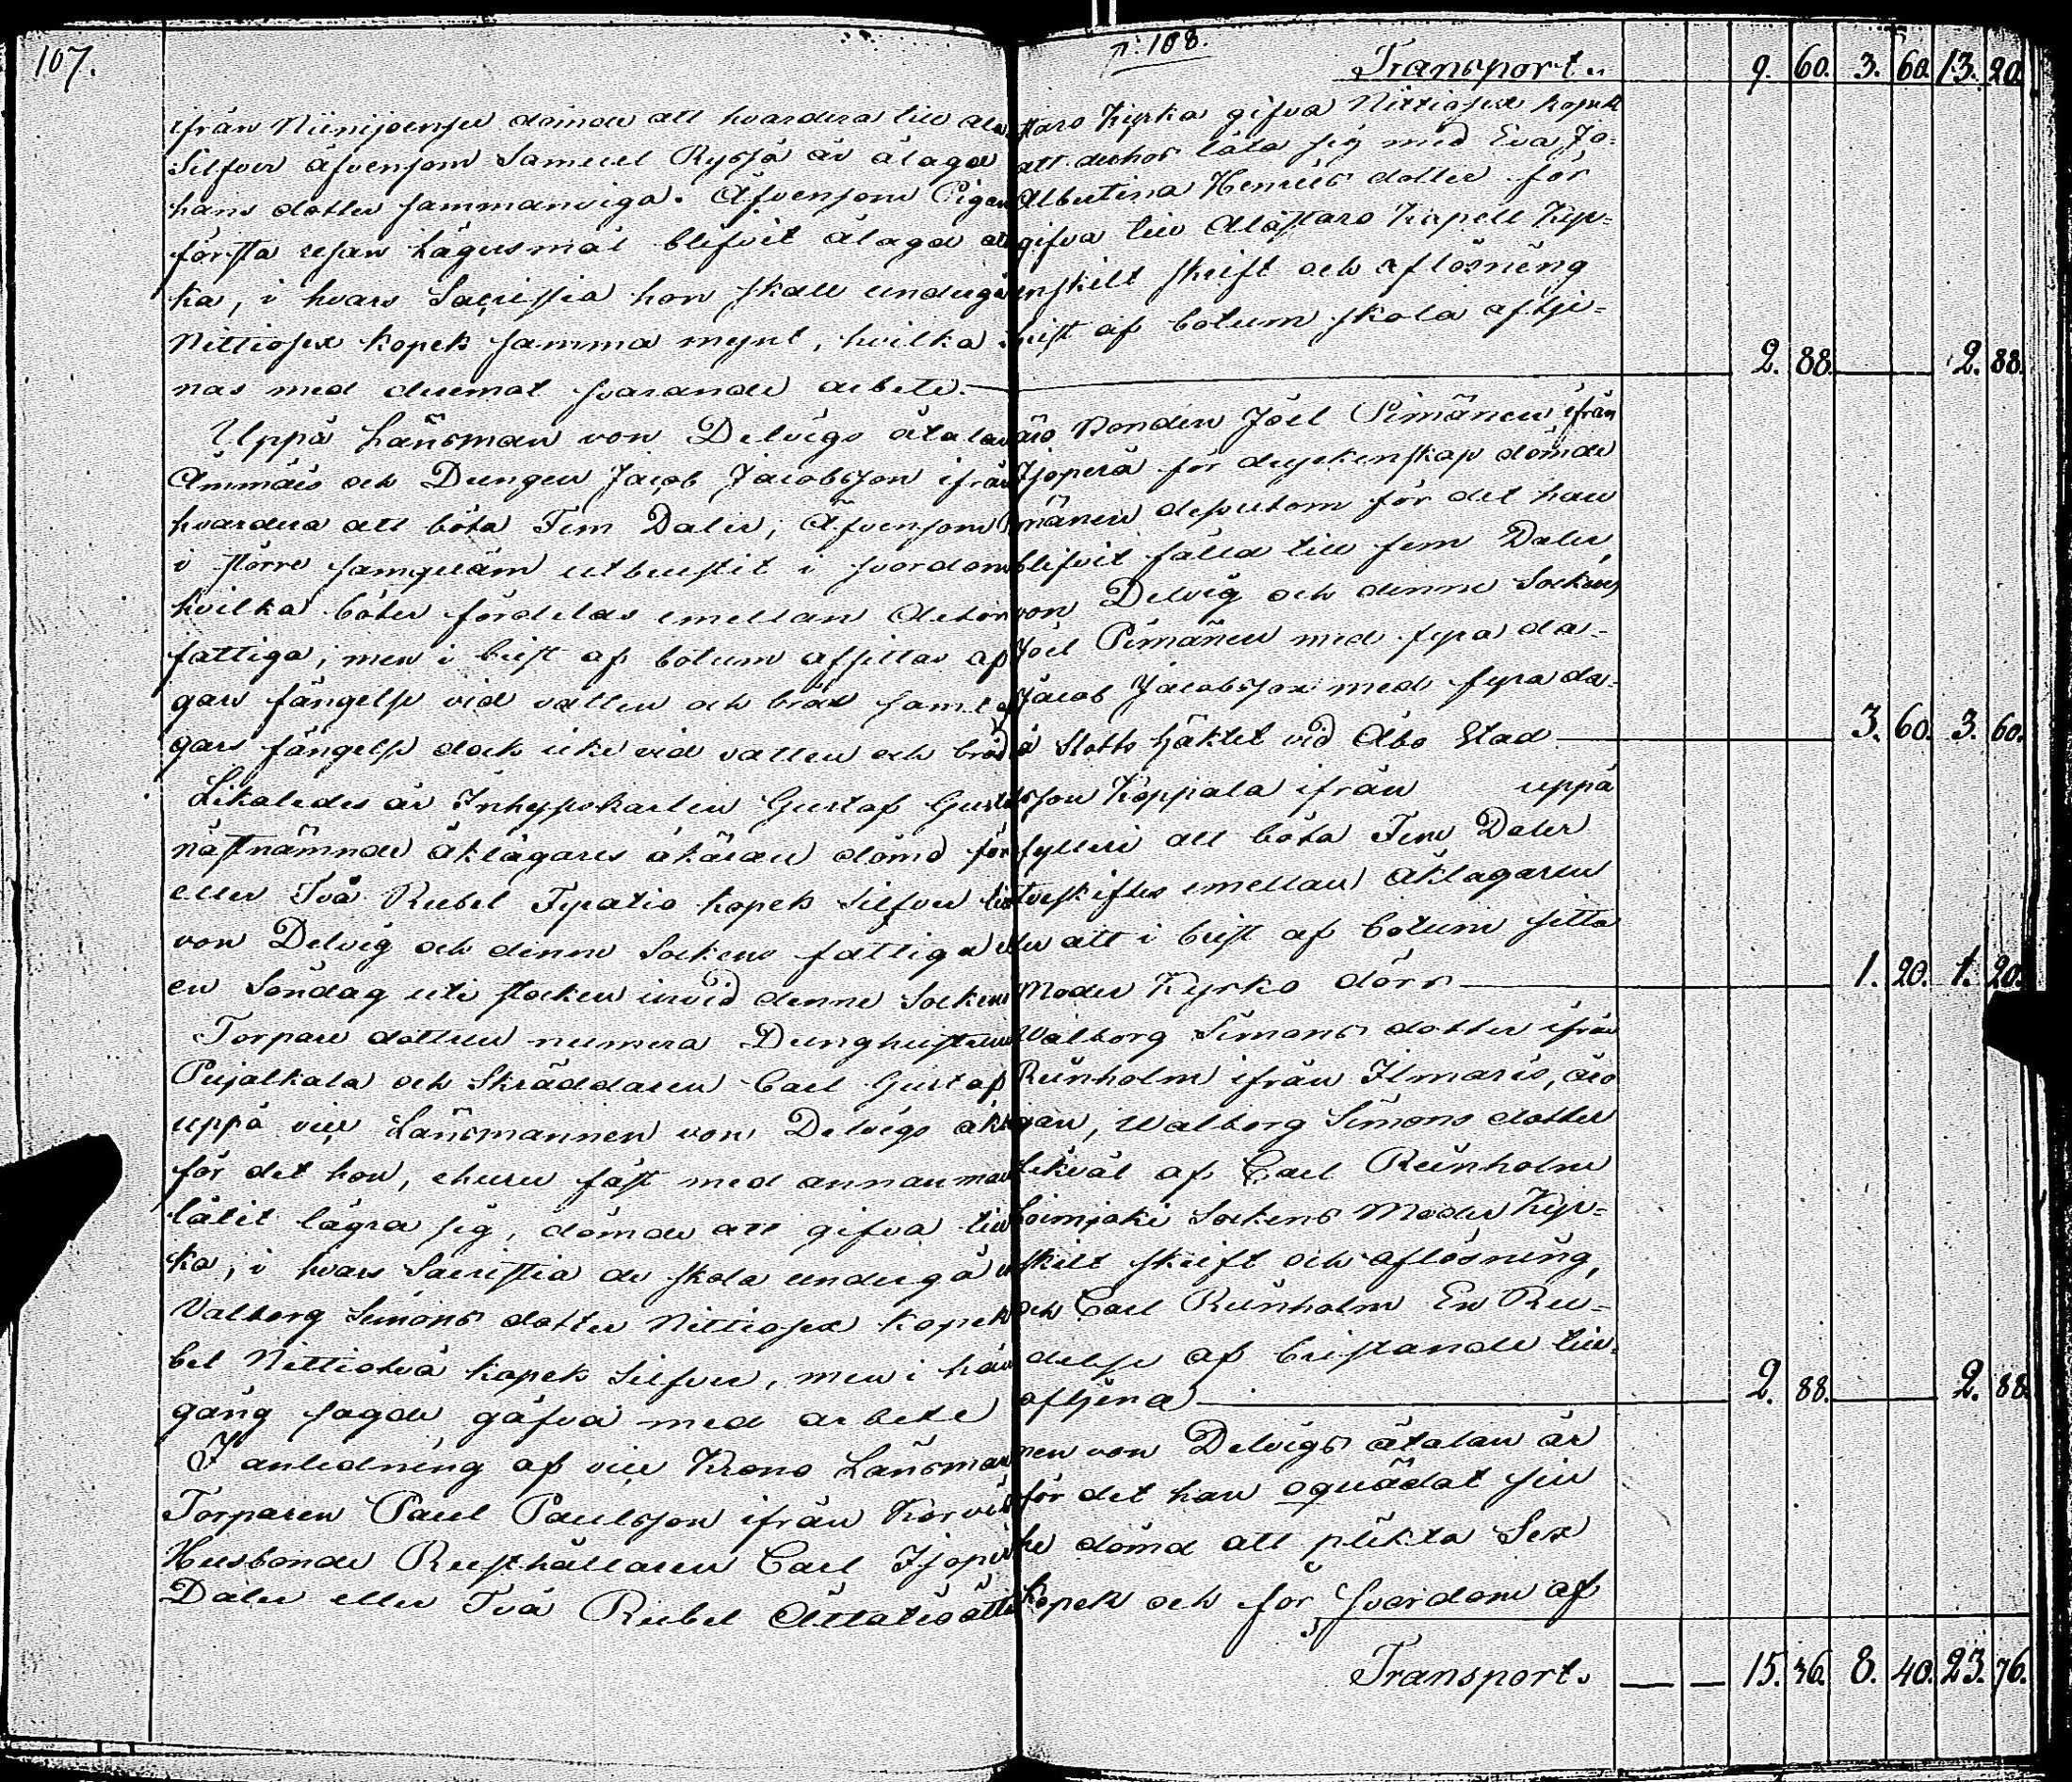 107.
N: 108.
Transport. 9. 60. 3. 60. 13. 20.
ifrån Niinijoensuu dömde att hvardera till Ala staro Kyrka gifva Nittiosex kopek
Silfver äfvensom Samuel Rysjä är ålagd att derhos låta sig med Eva Jo-
hans dotter sammanviga. Äfvensom Pigan Albertina Henrics dotter för
första resan lägersmål blifvit ålagd att gifva till Alastaro Kapell Kyr-
ka, i hvars Sacristia hon skall undergå enskilt skrift och aflösning
Nittiosex kopek samma mynt, hvilka i brist af botum skola aftje-
nas med deremot svarande arbete. 2. 88. 2. 88.
Uppå Länsman von Delvigs åtalan äro Bonden Joel Pimänen ifrån
Ämmäis och Drengen Jacob Jacobsson ifrån Isoperä för dryckenskap dömde
hvardera att böta Fem Daler; Äfvensom Pimänen dessutom för det han
i större samqväm utbrustit i svordom blifvit fälld till fem Daler,
hvilka böter fördelas emellan Actor von Delvig och denne Sockens
fattiga; men i brist af botum afsittas af Joel Pimänen med fyra da-
gars fängelse vid vatten och bröd samt af Jacob Jacobsson med fyra da-
gars fängelse dock icke vid vatten och bröd å Slotts häktet vid Åbo Stad 3. 60. 3. 60.
Likaledes är Inhyseskarlen Gustaf Gustafsson Koppala ifrån uppå
nästnämnde åklagares åkäran dömd för fylleri att böta Fem Daler
eller Två Rubel Fyratio kopek Silfver till tveskiftes emellan åklagaren
von Delvig och denne Sockens fattiga eller att i brist af botum sitta
en Söndag uti stocken invid denne Sockens Moder Kyrko dörr 1. 20. 1. 20.
Torpare dottren numera Drenghustrun Walborg Simons dotter ifrån
Pujalkala och Skräddaren Carl Gustaf Rünholm ifrån Ilmaris, äro
uppå vice Länsmannen von Delvigs åkäran, Walborg Simons dotter
för det hon, ehuru fäst med annan man likväl af Carl Rünholm
låtit lägra sig, dömde att gifva till Loimijoki Sockens Moder Kyr-
ka, i hvars Sacristia de skola undergå enskilt skrift och aflösning,
Valborg Simons dotter Nittiosex kopek och Carl Rünholm En Ru-
bel Nittiotvå kopek Silfver, men i händelse af bristande till-
gång sagde gäfva med arbete aftjena 2. 88. 2. 88.
I anledning af vice Krono Länsmannen von Delvigs åtalan är
Torparen Paul Paulsson ifrån för det han oqvädat sin
Husbonde Rusthållaren Carl dömd att plikta Sex
Daler eller Två Rubel Åttatioåtta kopek och för svordom af
Transport. 15. 36. 8. 40. 23. 76.